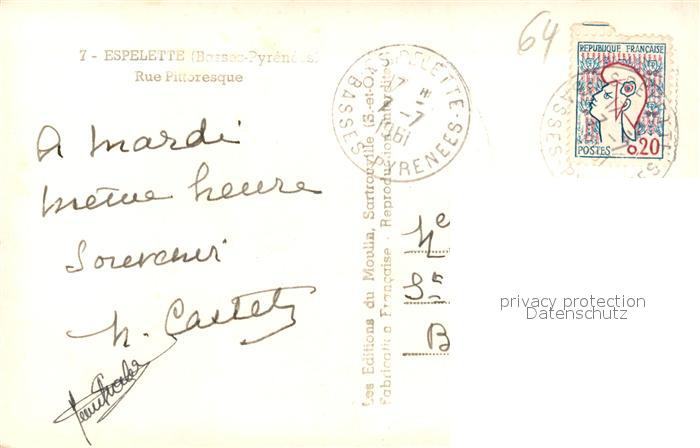 7 - ESPELETTE (Basses-Pyrénées)
Rue Pittoresque
A mardi
même heure
Souvenir
N. Castets
Les Editions du Moulin, Sartrouville (S.-et-O.)
Fabrication Française - Reproduction interdite
ESPELETTE
17 H
3 - 7
1961
BASSES-PYRENEES
64
REPUBLIQUE FRANCAISE
POSTES 0,20
Me
Sn
B
privacy protection
Datenschutz